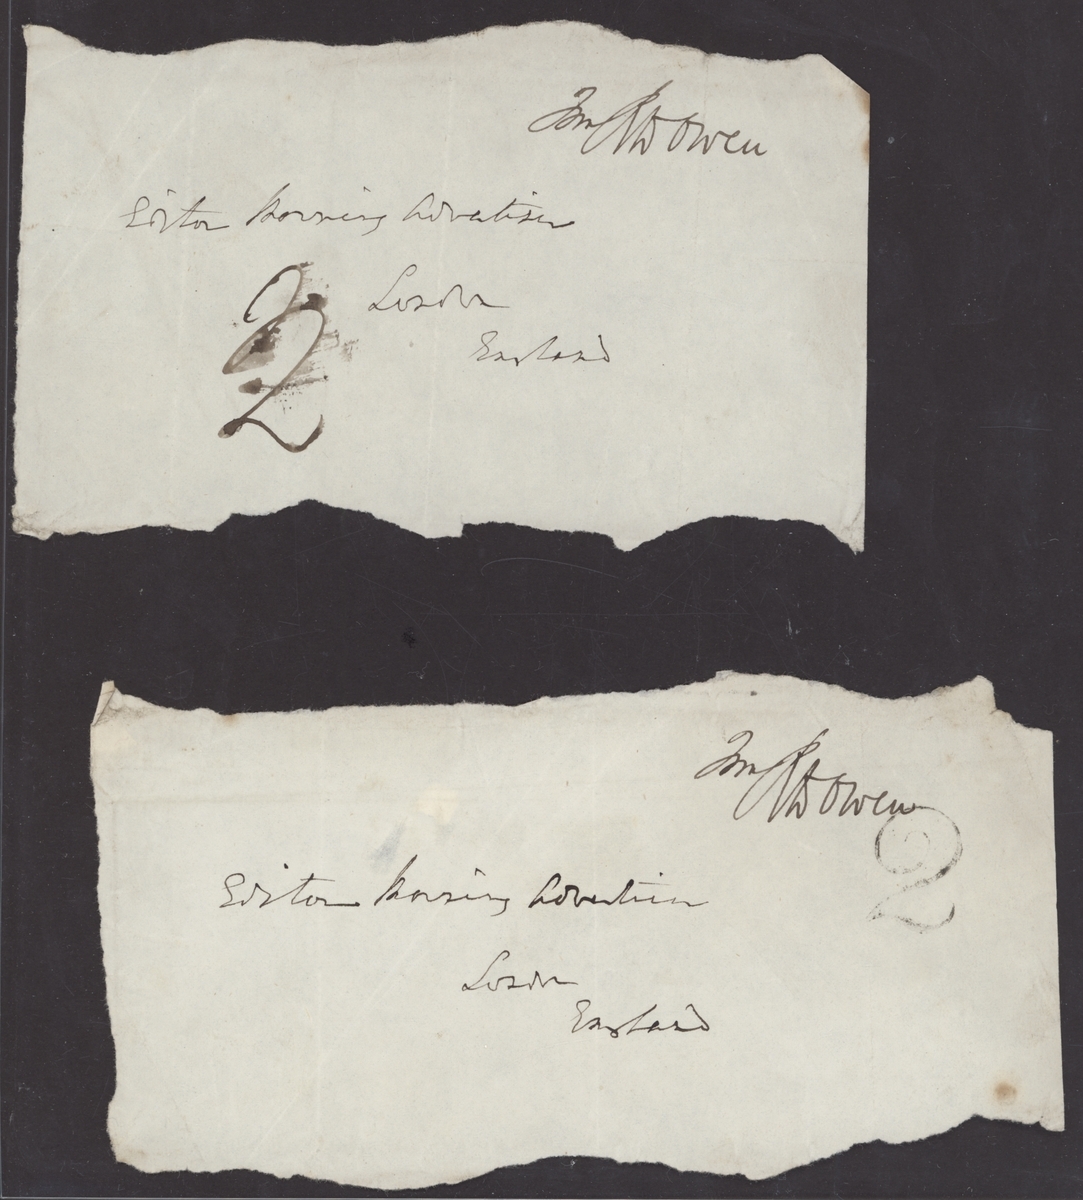 R D Owen
Editor Morning Advertiser
2
London
England
R D Owen
2
Editor Morning Advertiser
London
England